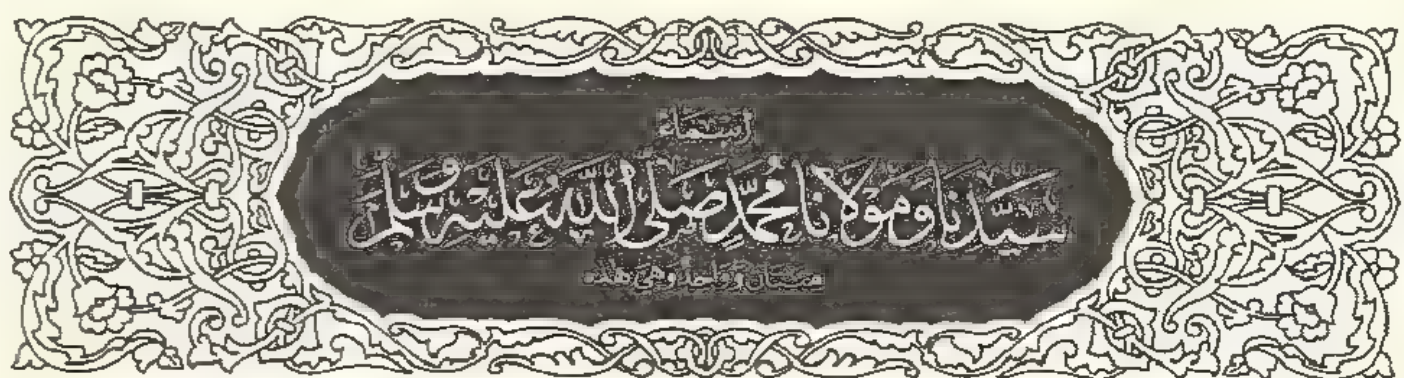 أسماء
سَيِّدِنَا وَمَوْلَانَا مُحَمَّدٍ صَلَّى اللَّهُ عَلَيْهِ وَسَلَّمَ
مئتان وواحد وهي هذه